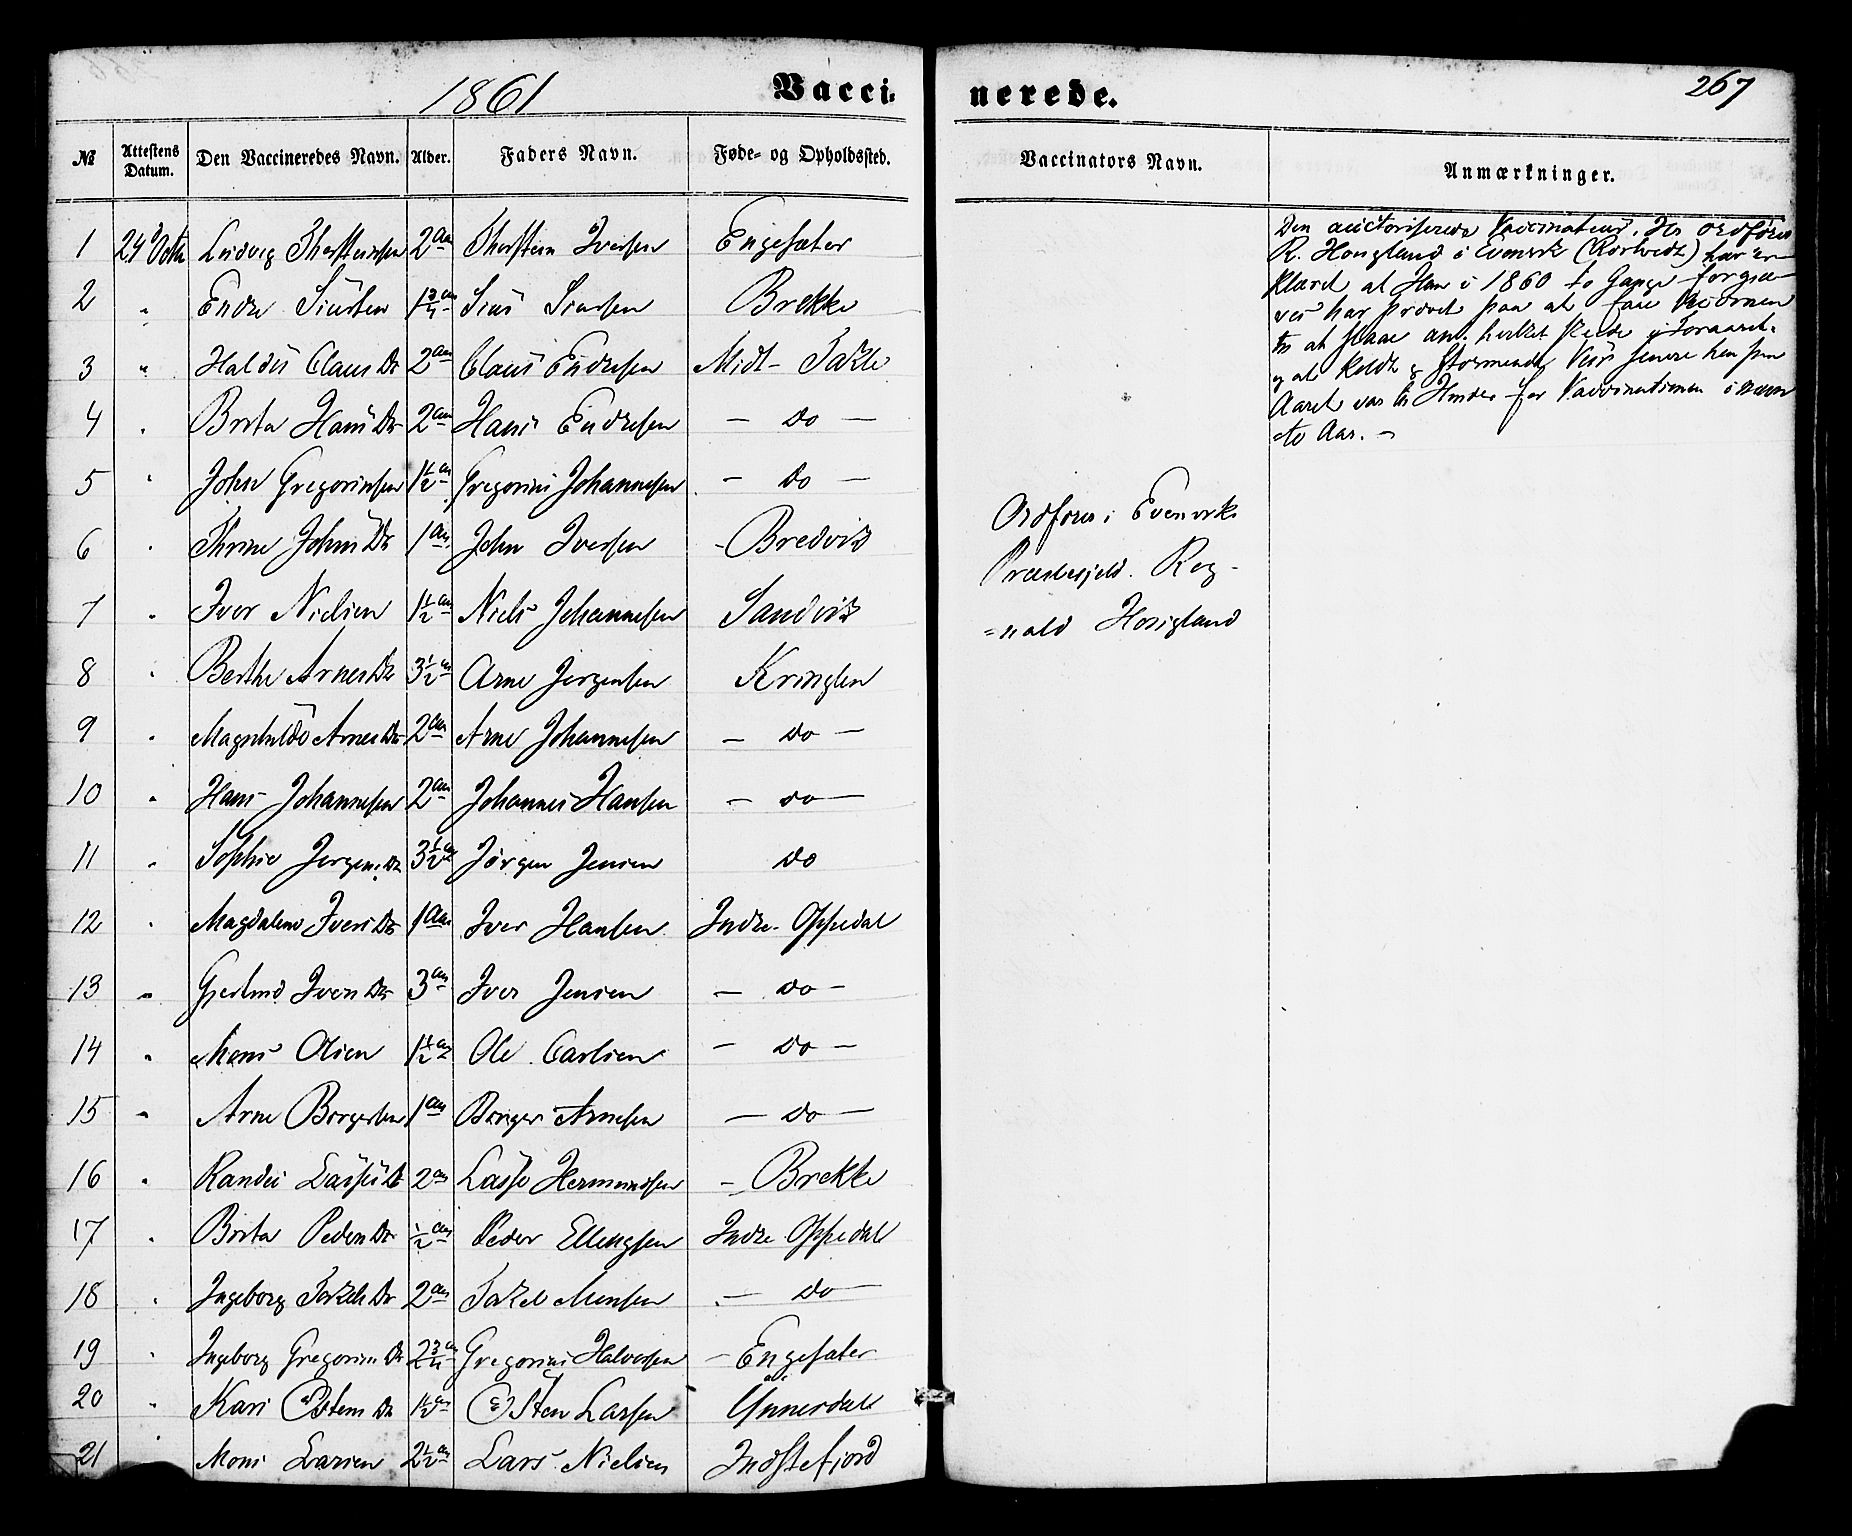 1861 Vacci- nerede. 267
No Attestens Datum. Den Vaccineredes Navn. Alder. Faders Navn. Føde- og Opholdssted. Vaccinators Navn. Anmærkninger.
1 24 Octb Ludvig Thorsteinsen 2 Aar Thorstein Iversen Engesæter
2 " Endre Siursen 1 3/4 aar Siur Siursen Brekke
3 " Haldis Claus Dr 2 aar Claus Endresen Midt- Takle
4 " Brita Hans Dr 2 aar Hans Endresen — do —
5 " John Gregoriussen 1 1/2 aar Gregorius Johannesen — do —
6 " Thrine Johns Dr 1 aar John Iversen - Bredvik
7 " Iver Nielsen 1 1/2 aar Niels Johannesen Sandvik
8 " Berthe Arnes Dr 3 1/2 aar Arne Jørgensen Kringlen
9 " Magnhilde Arnes Dr 2 aar Arne Johannesen — do —
10 " Hans Johannesen 2 aar Johannes Hansen — do —
11 " Sophie Jørgens Dr 3 1/2 aar Jørgen Jensen do
12 " Magdalene Ivers Dr 1 Aar Iver Hansen Indre Oppedal
13 " Gjerlund Ivers Dr 3 aar Iver Jensen — do —
14 " Mons Olsen 1 1/2 aar Ole Carlsen — do —
15 " Arne Børgesen 1 aar Børger Arnesen — do —
16 " Randi Lasse Dr 2 aar Lasse Hermundsen - Brekke
17 " Brita Peders Dr 1/2 aar Peder Ellingsen Indre Oppedal
18 " Ingeborg Torkels Dr 2 aar Torkel Monsen — do —
19 " Ingeborg Gregorius Dr 2 3/4 aar Gregorius Halvorsen - Engesæter
20 " Kari Østens Dr 1 1/2 aar Østen Larsen Ynnesdal
21 " Mons Larsen 2 1/2 aar Lars Nielsen Indstefjord
Ordfører i Evenvik
Præstegjeld. Reg-
=nald Housgland
Den auctoriserede Vaccinateur, Hr Ordfører
R. Housgland i Evenvik har er-
klæret at Han i 1860 to Gange forgjæ-
ves har prøvet paa at faae Vaccinen
til at slaae an, hvilket skede i Foraaret,
og at Koldt og stormende Veir senere hen paa
Aaret var til Hinder for Vaccinationen i nævn-
te Aar. —